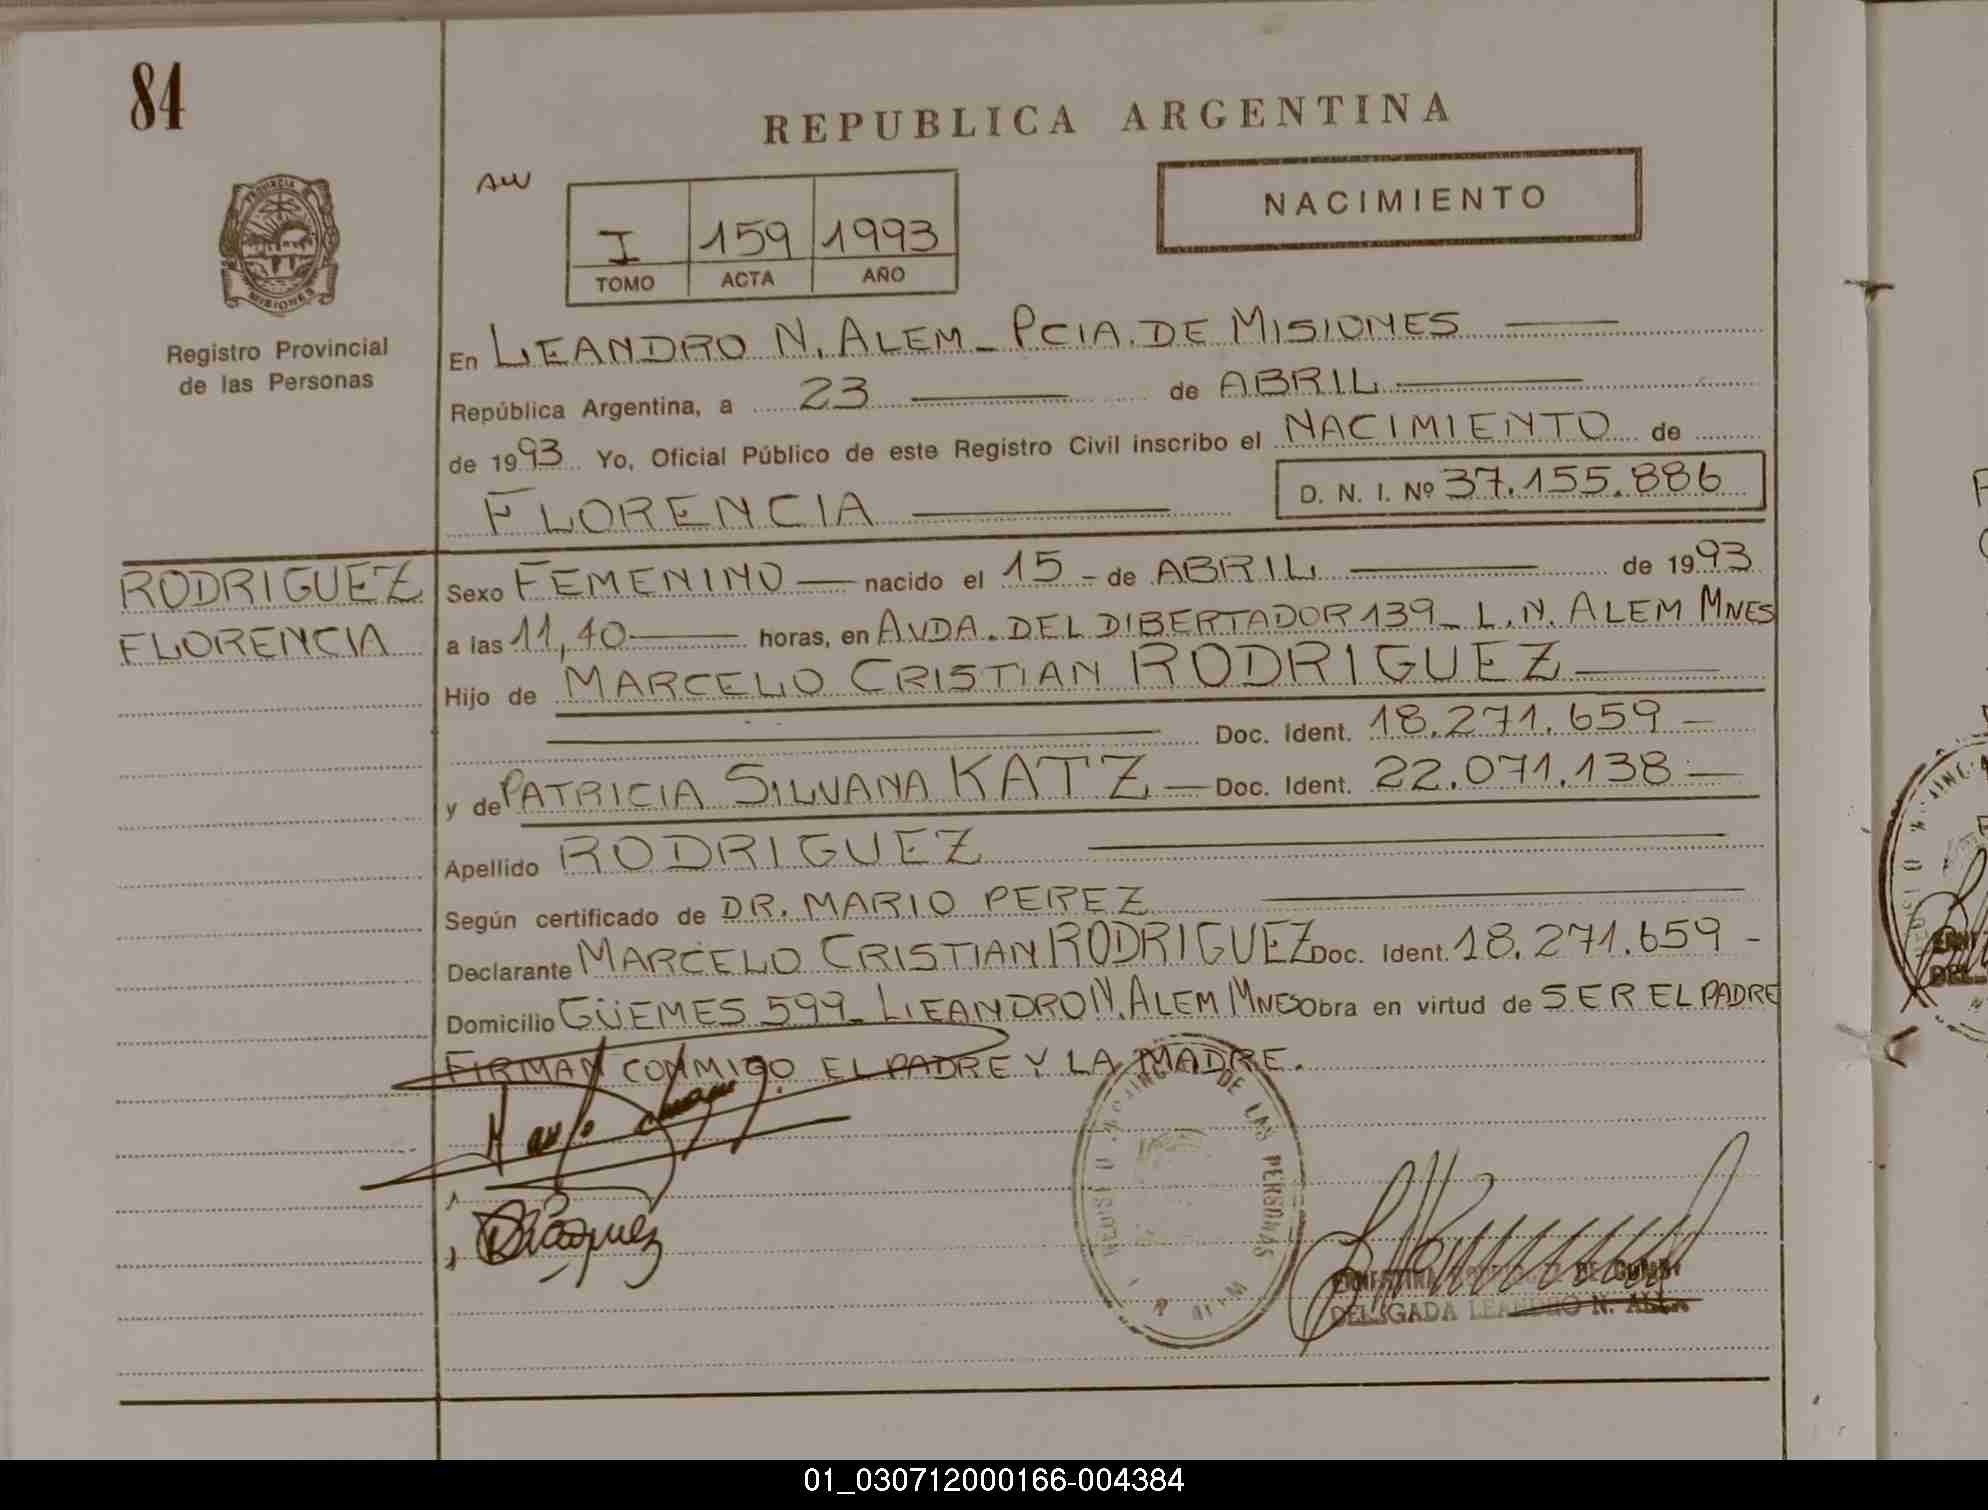 84
REPUBLICA ARGENTINA
AW
NACIMIENTO
I 159 1993
TOMO ACTA AÑO
PROVINCIA
MISIONES
Registro Provincial
de las Personas
En LEANDRO N. ALEM - PCIA. DE MISIONES
República Argentina, a 23 de ABRIL
de 1993 Yo, Oficial Público de este Registro Civil inscribo el NACIMIENTO de
FLORENCIA D. N. I. Nº 37.155.886
RODRIGUEZ
FLORENCIA
Sexo FEMENINO nacido el 15 - de ABRIL de 1993
a las 11,40 horas, en AVDA. DEL DIBERTADOR 139 - L. N. ALEM MNES
Hijo de MARCELO CRISTIAN RODRIGUEZ
Doc. Ident. 18.271.659 -
y de PATRICIA SILVANA KATZ - Doc. Ident. 22.071.138 -
Apellido RODRIGUEZ
Según certificado de DR. MARIO PEREZ
Declarante MARCELO CRISTIAN RODRIGUEZ Doc. Ident. 18.271.659 -
Domicilio GÜEMES 599 - LEANDRO N. ALEM MNES Obra en virtud de SER EL PADRE
FIRMAN CONMIGO EL PADRE Y LA MADRE.
DE LAS PERSONAS
DELEGADA LEANDRO N. ALEM
01_030712000166-004384